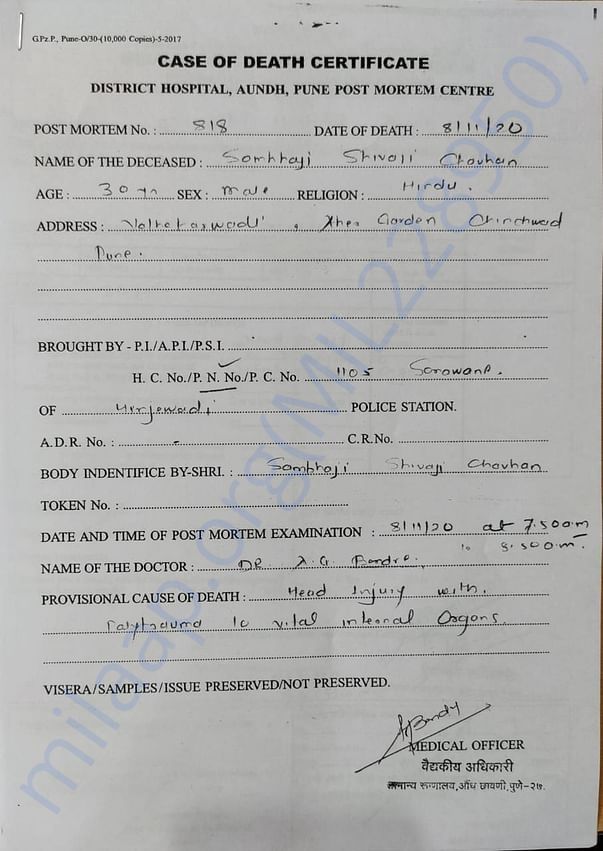 G.Pz.P., Pune-O/30-(10,000 Copies)-5-2017
CASE OF DEATH CERTIFICATE
DISTRICT HOSPITAL, AUNDH, PUNE POST MORTEM CENTRE
POST MORTEM No. : 818 DATE OF DEATH : 8/11/20
NAME OF THE DECEASED : Sambhaji Shivaji Chavhan
AGE : 30 yr SEX : male RELIGION : Hindu.
ADDRESS : , Garden Chinchwad
Pune.
BROUGHT BY - P.I./A.P.I./P.S.I.
H. C. No./P. N. No./P. C. No. 1105
OF Hinjewadi POLICE STATION.
A.D.R. No. : - C.R.No.
BODY INDENTIFICE BY-SHRI. : Sambhaji Shivaji Chavhan
TOKEN No. :
DATE AND TIME OF POST MORTEM EXAMINATION : 8/11/20 at 7.50am
to 8.50am.
NAME OF THE DOCTOR : DR.
PROVISIONAL CAUSE OF DEATH : Head Injury with.
Polytrauma to vital internal Organs.
VISERA/SAMPLES/ISSUE PRESERVED/NOT PRESERVED.
MEDICAL OFFICER
वैद्यकीय अधिकारी
सामान्य रुग्णालय,औंध छावणी,पुणे-२७.
milaap.org(MIL228950)